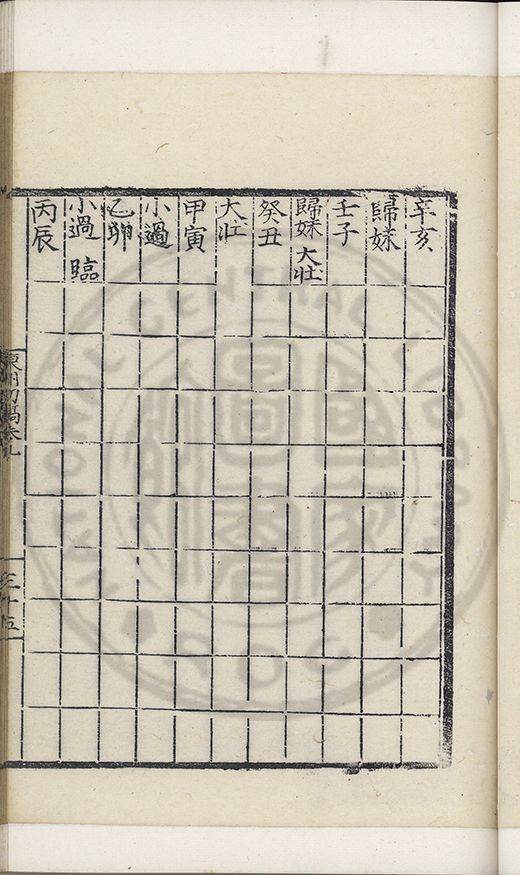 辛亥
歸妹
壬子
歸妹 大壯
癸丑
大壯
甲寅
小過
乙卯
小過 臨
丙辰
NATIONAL CENTRAL LIBRARY
ROC